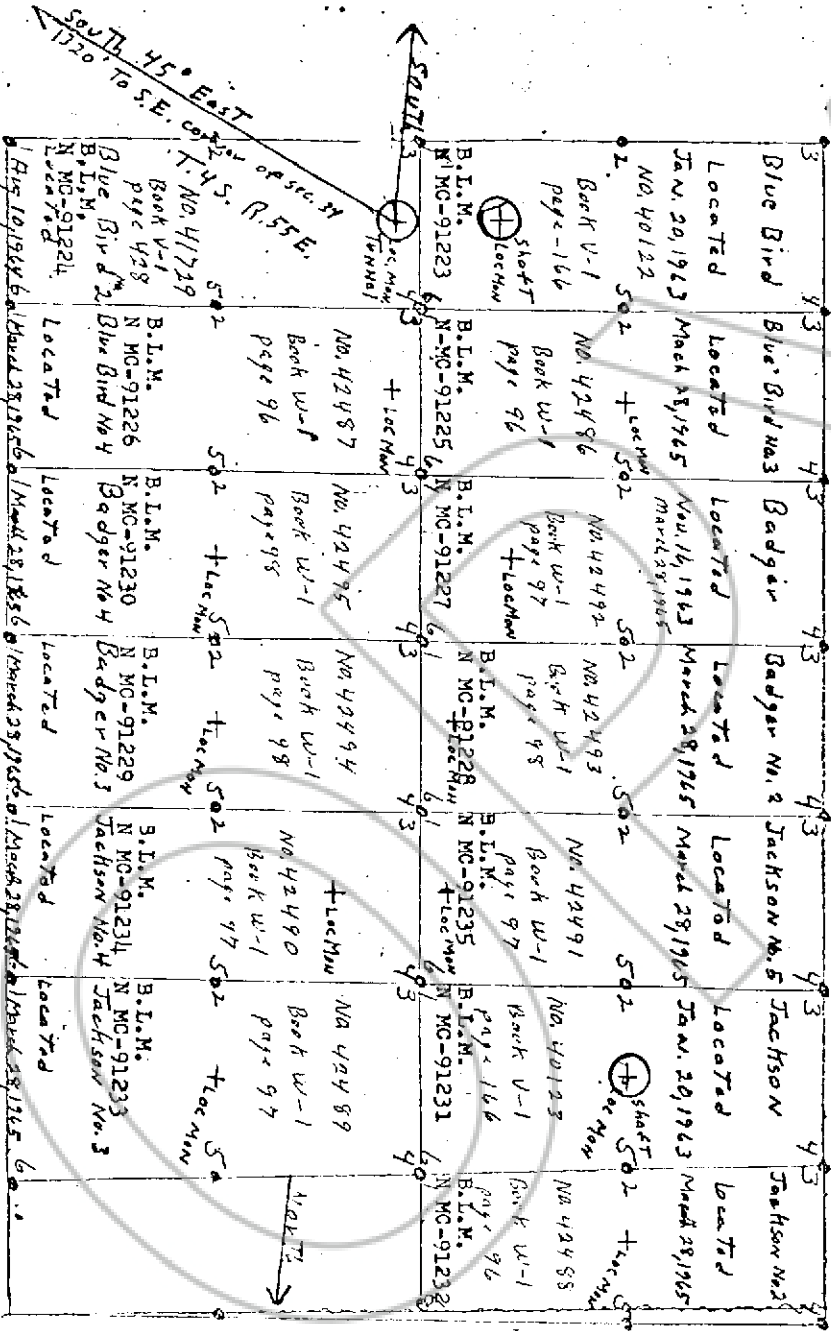 South 45° East
1320' To S.E. corner of sec. 34
T.4S. R.55E.
South
North
Blue Bird
Located
Jan. 20, 1963
No. 40122
Book V-1
page-166
Shaft
Loc Mon
B.L.M.
N MC-91223
Blue Bird No3
Located
Mach 28, 1965
Loc Mon
No. 42486
Book W-1
page 96
B.L.M.
N-MC-91225
Badger
Located
Nov. 16, 1963
March 28, 1965
No. 42492
Book W-1
page 97
Loc Mon
B.L.M.
N MC-91227
Badger No. 2
Located
March 28, 1965
No. 42493
Book W-1
page 98
B.L.M.
N MC-91228
Loc Mon
Jackson No. 5
Located
March 28, 1965
No. 42491
Book W-1
page 97
B.L.M.
N MC-91235
Loc Mon
Jackson
Located
Jan. 20, 1963
Shaft
Loc Mon
No. 40123
Book V-1
page 166
B.L.M.
N MC-91231
Jackson No. 2
Located
March 28, 1965
Loc Mon
No 42488
Book W-1
page 96
B.L.M.
N MC-91232
Loc. Mon
Tunnel
No. 41729
Book V-1
page 428
Blue Bird No 2
B.L.M.
N MC-91224
Located
Aug 10, 1964
Loc Mon
No. 42487
Book W-1
page 96
B.L.M.
N MC-91226
Blue Bird No 4
Located
March 28, 1965
No. 42495
Book W-1
page 98
Loc Mon
B.L.M.
N MC-91230
Badger No 4
Located
March 28, 1965
No. 42494
Book W-1
page 98
Loc Mon
B.L.M.
N MC-91229
Badger No. 3
Located
March 28, 1965
Loc Mon
No. 42490
Book W-1
page 97
B.L.M.
N MC-91234
Jackson No. 4
Located
March 28, 1965
No 42489
Book W-1
page 97
Loc Mon
B.L.M.
N MC-91233
Jackson No. 3
Located
March 28, 1965